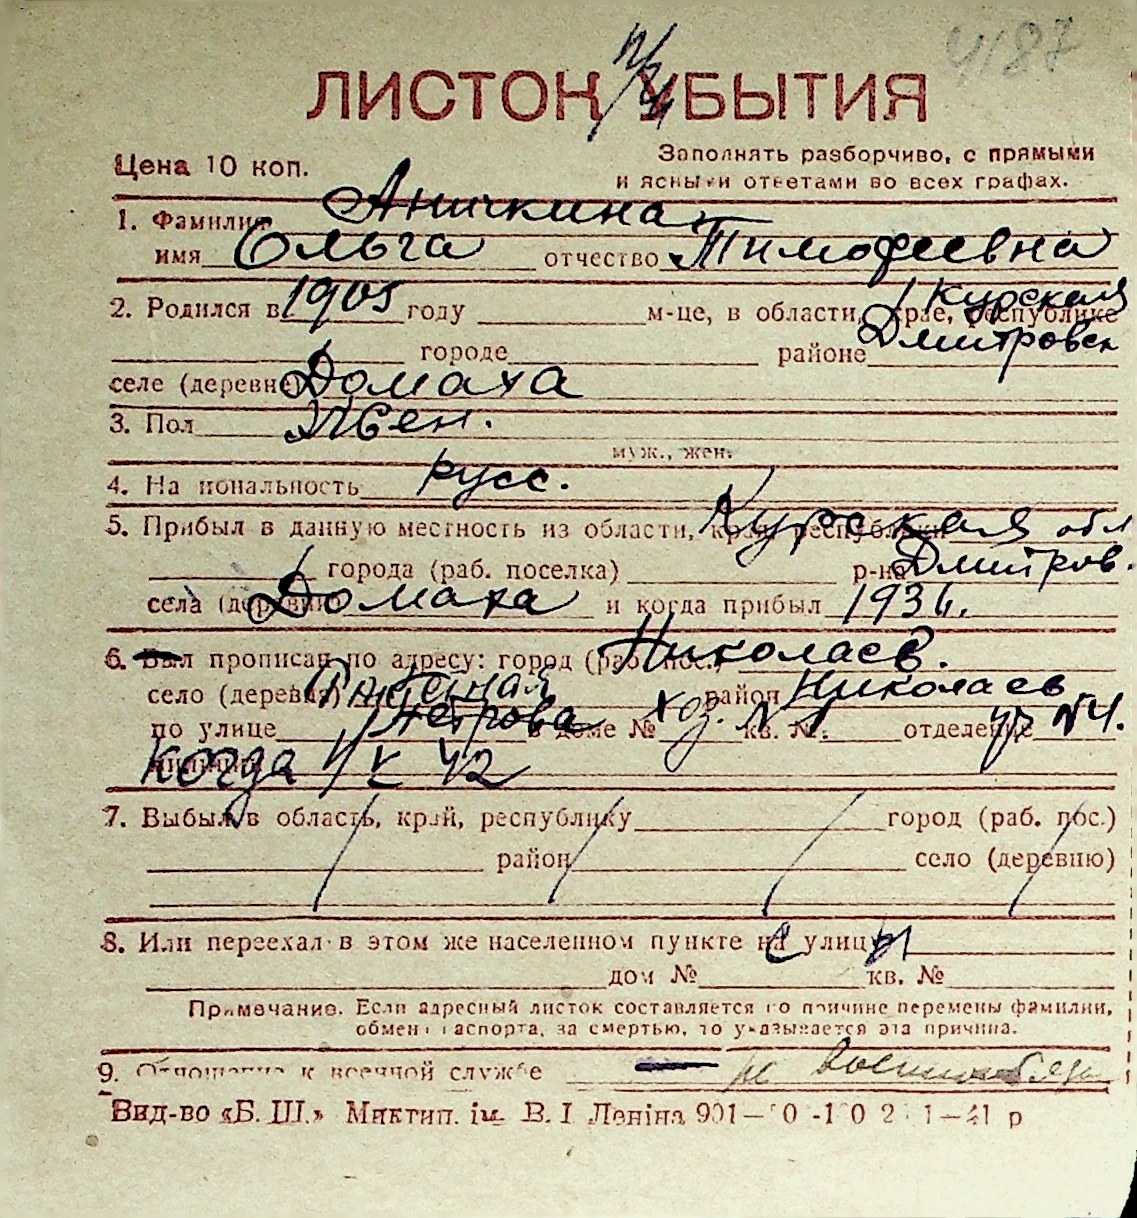 4187
ЛИСТОК УБЫТИЯ
Цена 10 коп.
Заполнять разборчиво, с прямыми
и ясными ответами во всех графах.
1. Фамилия Аничкина
имя Ольга отчество Тимофеевна
2. Родился в 1905 году м-це, в области, крае, республике Курская
городе районе Дмитровск
селе (деревне) Домаха
3. Пол Жен.
муж., жен.
4. Национальность русс.
5. Прибыл в данную местность из области, край, республики Курская обл
города (раб. поселка) р-на Дмитров.
села (деревни) Домаха и когда прибыл 1931.
6. Был прописан по адресу: город (раб. пос.) Николаев.
село (деревня) район Николаев
по улице Петрова в доме № хоз. №1 кв. № отделение уч №4.
когда
7. Выбыл в область, край, республику город (раб. пос.)
район село (деревню)
8. Или переехал в этом же населенном пункте на улицу
дом № кв. №
Примечание. Если адресный листок составляется по причине перемены фамилии,
обмена паспорта, за смертью, то указывается эта причина.
9. Отношение к военной службе не военнообяза
Вид-во «Б. Ш.» Миктип. ім. В. І Леніна